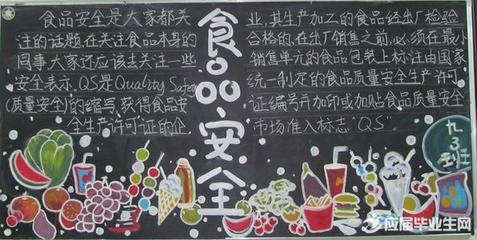 食品安全是大家都关
注的话题,在关注食品本身的
同事大家还应该去关注一些
安全表示,QS是Quality Safety
(质量安全)的缩写,获得食品安
全生产许可证的企
食品安全
业,其生产加工的食品经出厂检验
合格的,在出厂销售之前,必须在最小
销售单元的食品包装上标注由国家
统一制定的食品质量安全生产许可
证编号并加印或加贴食品质量安全
市场准入标志"QS"
九3班
应届毕业生网